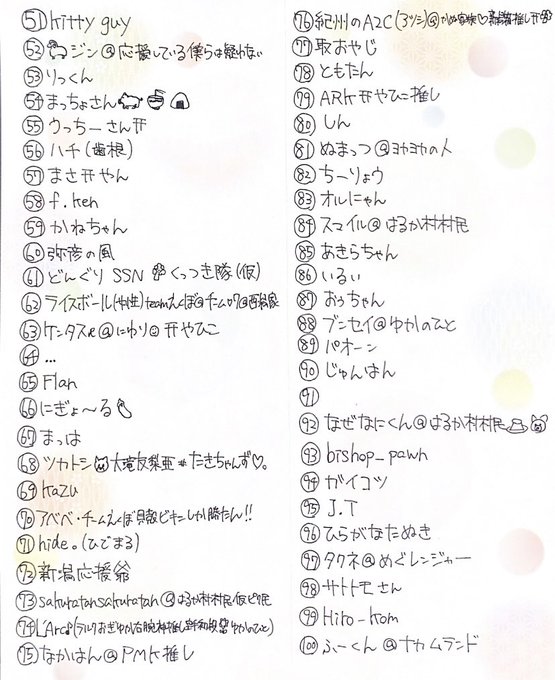 ㊿+1 kitty guy
52 ジン@応援している僕らは疑わない
53 りっくん
54 まっちょさん
55 うっちーさん⛩
56 ハチ(歯根)
57 まさ⛩やん
58 f.ken
59 かねちゃん
60 弥彦の風
61 どんぐり SSN くっつき隊(仮)
62 ライスボール(中性)teamえくぼ@チーム
63 ケンタスR@にゆり@⛩やひこ
64 ...
65 Flan
66 にぎょ〜る
67 まっは
68 ツカトシ 大滝友梨亜 #たきちゃんず♡。
69 kazu
70 アベベ・チームえくぼ貝殻ビキニしか勝たん!!
71 hide。(ひでまる)
72 新潟応援爺
73 sakuratansakuratan@はるか村村民
74 L'Arc♪
75 なかはん@PMK推し
76 紀州のA2C(アツシ)@
77 取おやじ
78 ともたん
79 ARK⛩やひこ推し
80 しん
81 ぬまっつ@ヨカヨカの人
82 ちーりょウ
83 オルにゃん
84 スマイル@はるか村村民
85 あきらちゃん
86 いるい
87 おぅちゃん
88 ブンセイ@ゆかのひと
89 パオーン
90 じゅんはん
91
92 なぜなにくん@はるか村村民
93 bishop_pawn
94 ガイコツ
95 J.T
96 ひらがなたぬき
97 タクネ@めぐレンジャー
98 サトトモさん
99 Hiro-kom
100 ふーくん@ナカムランド